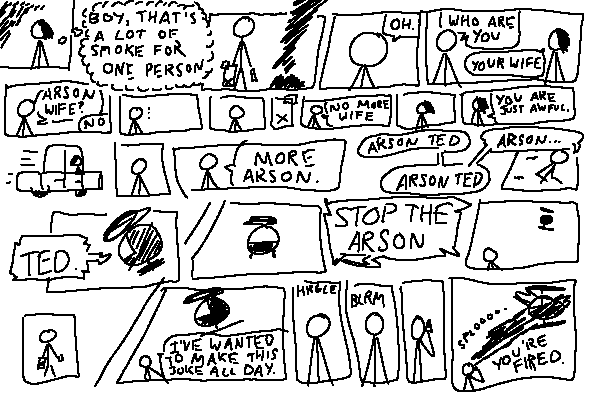 BOY, THAT'S
A LOT OF
SMOKE FOR
ONE PERSON
OH.
WHO ARE
YOU
YOUR WIFE
ARSON
WIFE?
NO
...
NO MORE
WIFE
YOU ARE
JUST AWFUL.
MORE
ARSON.
ARSON TED
ARSON TED
ARSON...
TED.
STOP THE
ARSON
I'VE WANTED
TO MAKE THIS
JOKE ALL DAY.
HRGLE
BLRM
SPLOOOO..
YOU'RE
FIRED.